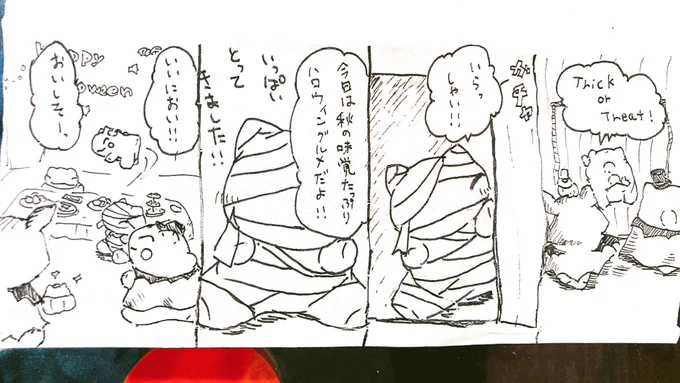 Trick
or
Treat!
ガチャ
いらっ
しゃい!!
今日は秋の味覚たっぷり
ハロウィングルメだよ!!
いっぱい
とって
きました!!
いいにおい!!
おいしそー。
ppy
ween